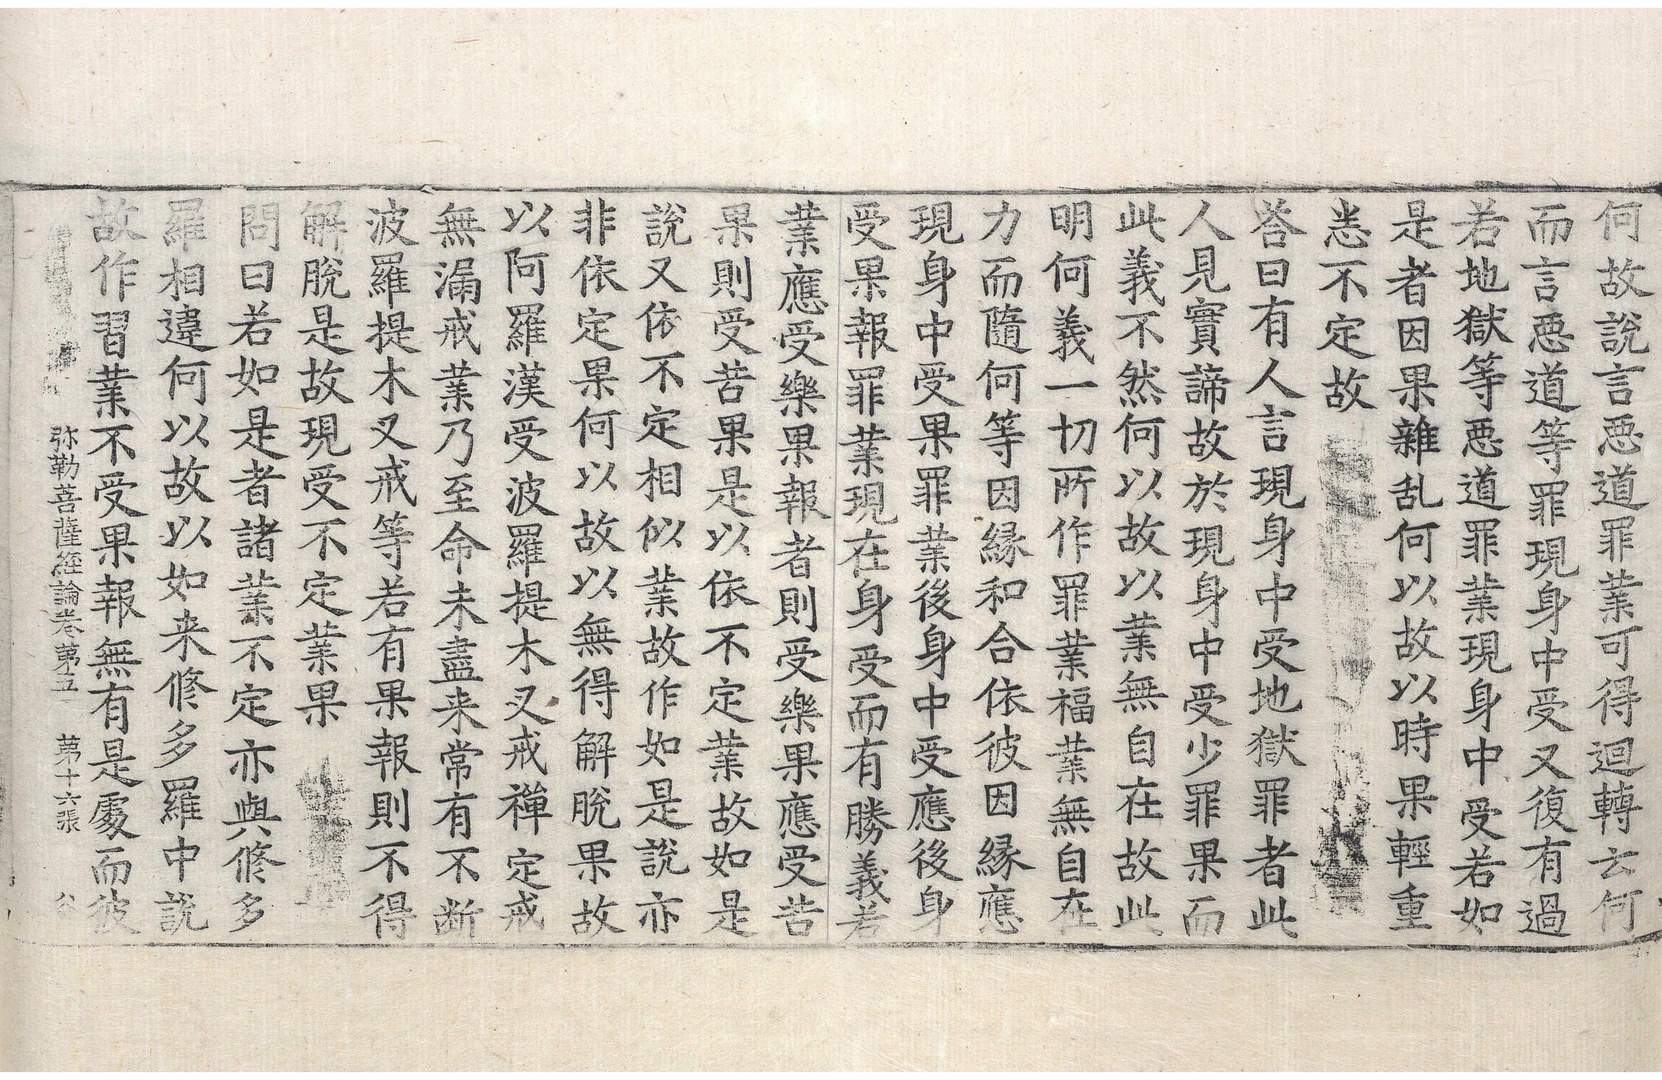 何故說言惡道罪業可得迴轉云何
而言惡道等罪現身中受又復有過
若地獄等惡道罪業現身中受若如
是者因果雜乱何以故以時果輕重
恙不定故
荅曰有人言現身中受地獄罪者此
人見實諦故於現身中受少罪果而
此義不然何以故以業無自在故此
明何義一切所作罪業福業無自在
力而隨何等因緣和合依彼因緣應
現身中受果罪業後身中受應後身
受果報罪業現在身受而有勝義若
業應受樂果報者則受樂果應受苦
果則受苦果是以依不定業故如是
說又依不定相似業故作如是說亦
非依定果何以故以無得解脫果故
以阿羅漢受波羅提木叉戒禪定戒
無漏戒業乃至命未盡来常有不斷
波羅提木叉戒等若有果報則不得
解脫是故現受不定業果
問曰若如是者諸業不定亦與修多
羅相違何以故以如来修多羅中說
故作習業不受果報無有是處而彼
弥勒菩薩經論卷苐五 苐十六張